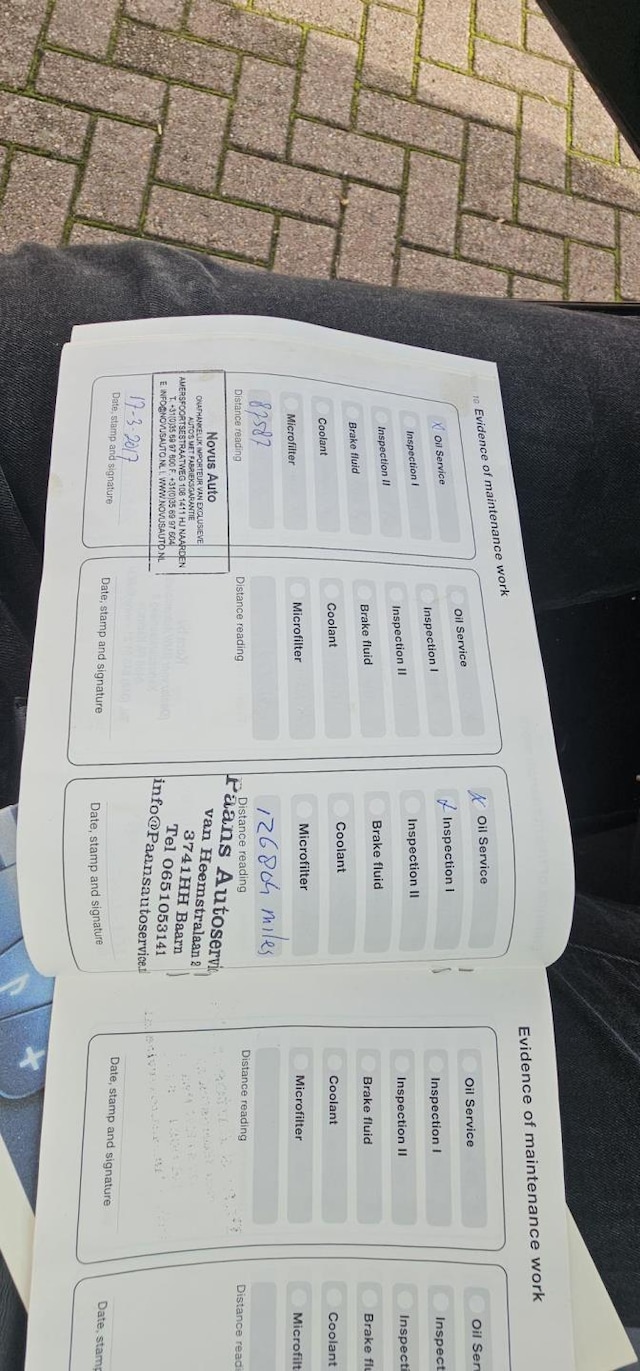 10 Evidence of maintenance work
X Oil Service
Inspection I
Inspection II
Brake fluid
Coolant
Microfilter
87587
Distance reading
Novus Auto
ONAFHANKELIJK IMPORTEUR VAN EXCLUSIEVE
AUTO'S MET FABRIEKSGARANTIE
AMERSFOORTSESTRAATWEG 108 1411 HJ NAARDEN
T. +31(0)35 69 97 600 F. +31(0)35 69 97 604
E. INFO@NOVUSAUTO.NL I. WWW.NOVUSAUTO.NL
17-3-2017
Date, stamp and signature
Oil Service
Inspection I
Inspection II
Brake fluid
Coolant
Microfilter
Distance reading
Date, stamp and signature
X Oil Service
X Inspection I
Inspection II
Brake fluid
Coolant
Microfilter
126804 miles
Distance reading
Paans Autoservi
van Heemstralaan 2
3741HH Baarn
Tel 0651053141
info@Paansautoservice.
Date, stamp and signature
Evidence of maintenance work
Oil Service
Inspection I
Inspection II
Brake fluid
Coolant
Microfilter
Distance reading
Date, stamp and signature
Oil Ser
Inspect
Inspecti
Brake flu
Coolant
Microfilt
Distance readi
Date, stamp